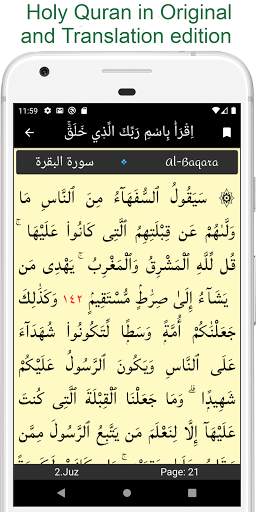 Holy Quran in Original
and Translation edition
11:59
اِقْرَأْ بِاسْمِ رَبِّكَ الَّذِي خَلَقَۚ
سورة البقرة Al-Baqara
۞ سَيَقُولُ ٱلسُّفَهَآءُ مِنَ ٱلنَّاسِ مَا
وَلَّىٰهُمْ عَن قِبْلَتِهِمُ ٱلَّتِى كَانُوا۟ عَلَيْهَا ۚ
قُل لِّلَّهِ ٱلْمَشْرِقُ وَٱلْمَغْرِبُ ۚ يَهْدِى مَن
يَشَآءُ إِلَىٰ صِرَٰطٍ مُّسْتَقِيمٍ ١٤٢ وَكَذَٰلِكَ
جَعَلْنَٰكُمْ أُمَّةً وَسَطًا لِّتَكُونُوا۟ شُهَدَآءَ
عَلَى ٱلنَّاسِ وَيَكُونَ ٱلرَّسُولُ عَلَيْكُمْ
شَهِيدًا ۗ وَمَا جَعَلْنَا ٱلْقِبْلَةَ ٱلَّتِى كُنتَ
عَلَيْهَآ إِلَّا لِنَعْلَمَ مَن يَتَّبِعُ ٱلرَّسُولَ مِمَّن
2.Juz Page: 21